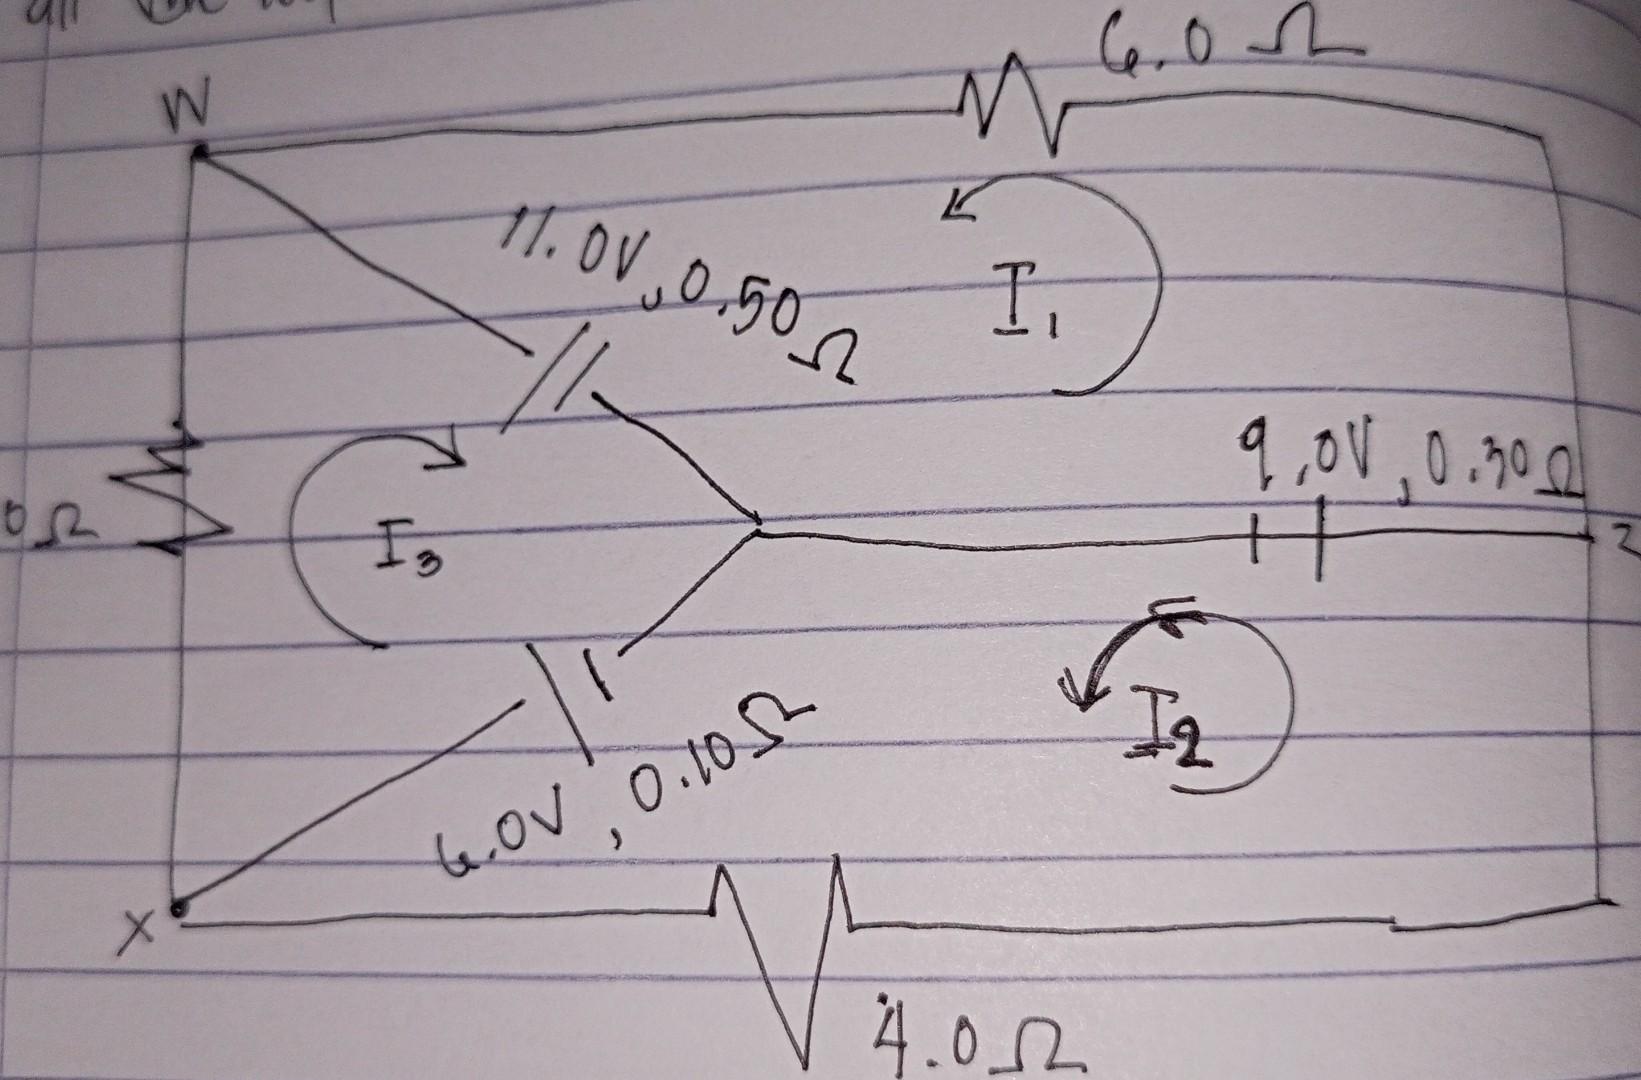 6.0 Ω
W
11.0V, 0.50
Ω
I₁
9.0V, 0.30Ω
0Ω
I₃
Z
I₂
6.0V, 0.10Ω
X
4.0Ω